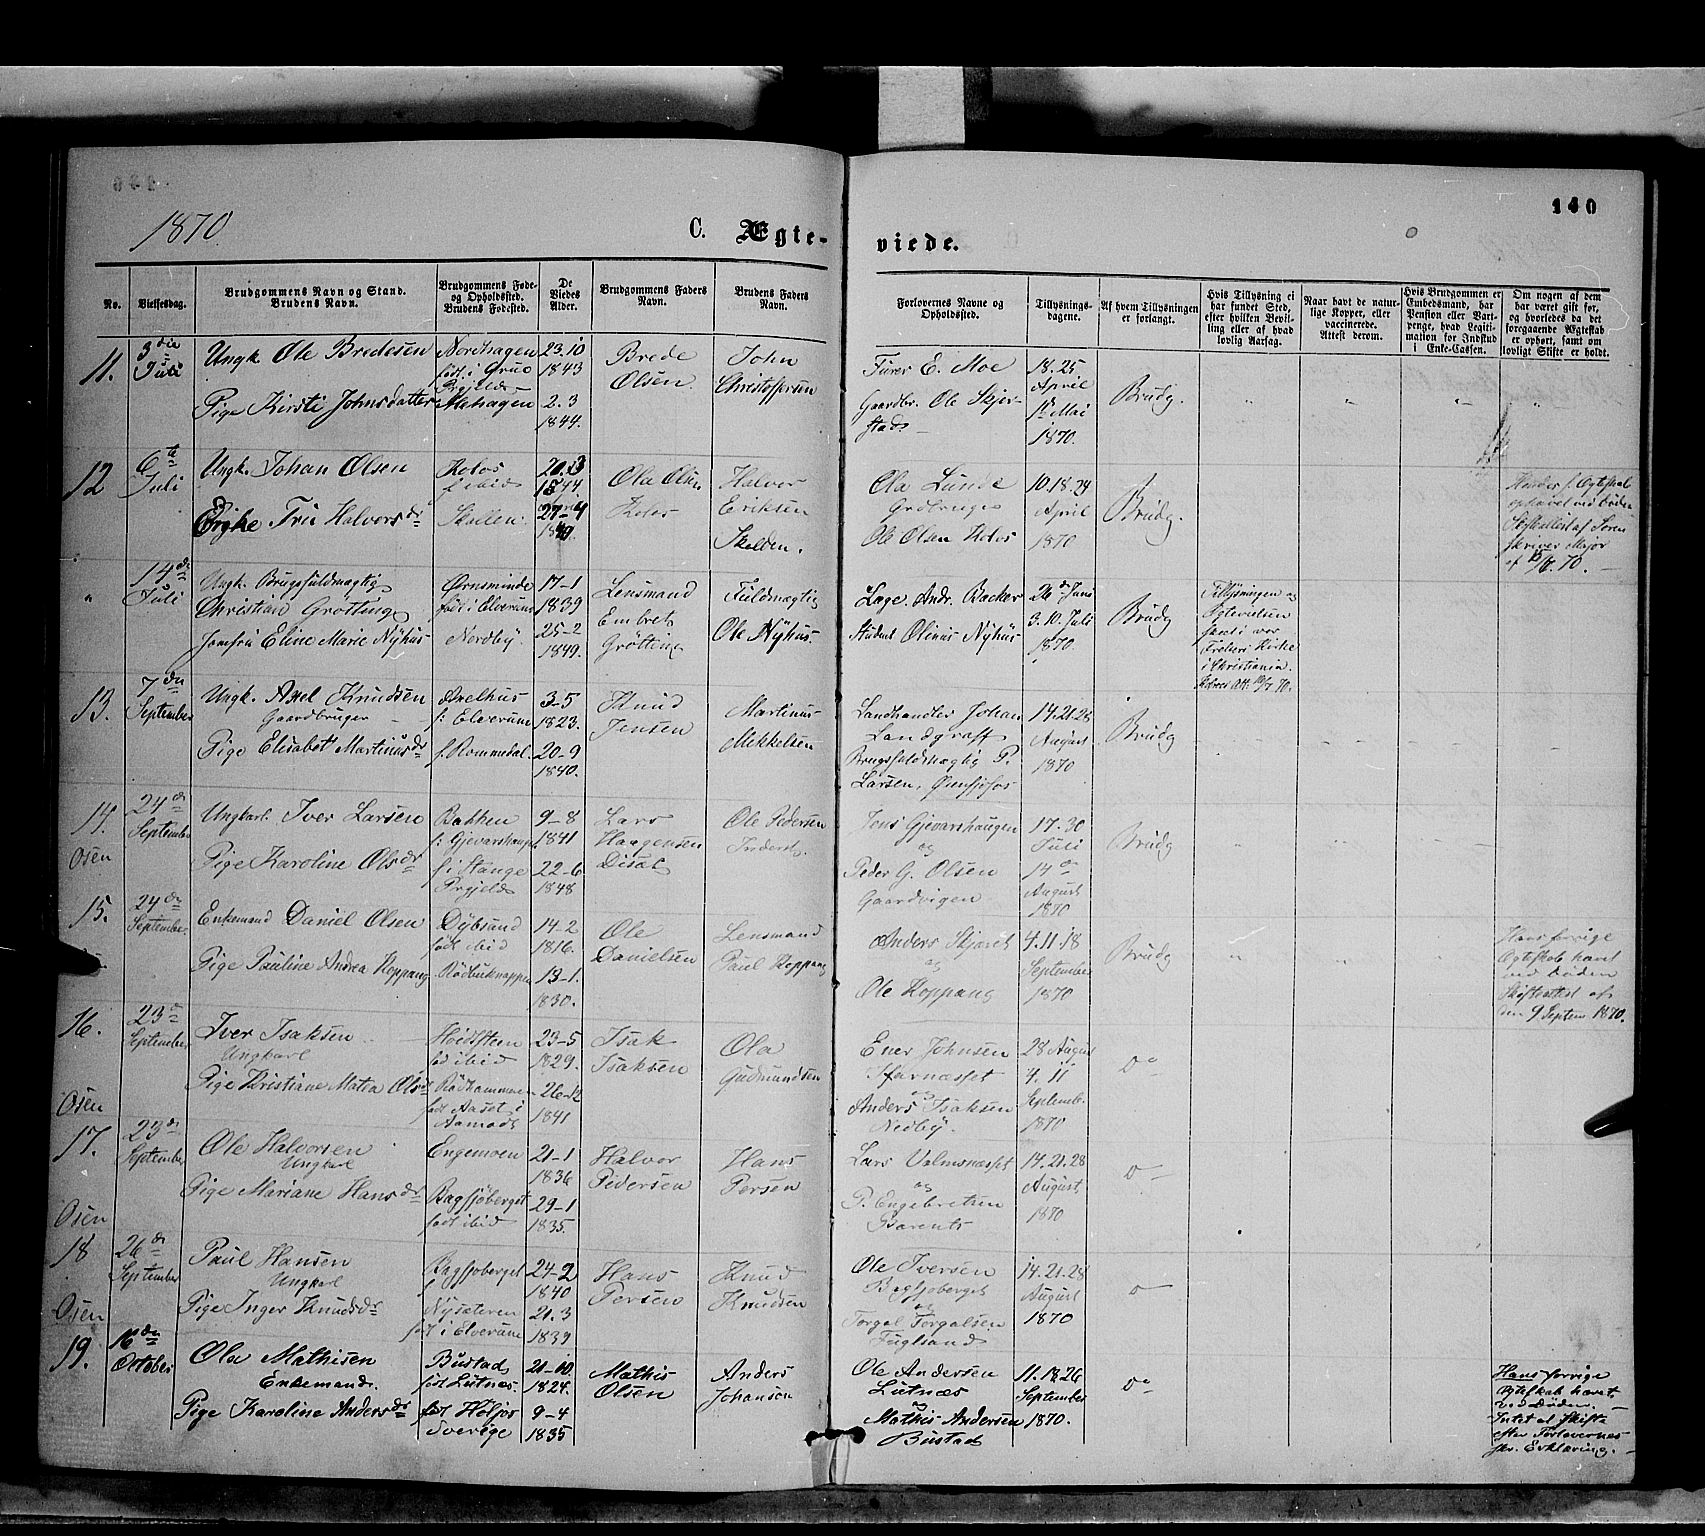 140
1870
C. Ægte-
viede.
No.
Vielsesdag.
Brudgommens Navn og Stand.
Brudens Navn.
Brudgommens Føde-
og Opholdssted.
Brudens Fødested.
De
Viedes
Alder.
Brudgommens Faders
Navn.
Brudens Faders
Navn.
Forlovernes Navne og
Opholdssted.
Tillysnings-
dagene.
Af hvem Tillysningen
er forlangt.
Hvis Tillysning ei
har fundet Sted,
efter hvilken Bevil-
ling eller af hvad
lovlig Aarsag.
Naar havt de natur-
lige Kopper, eller
vaccinerede.
Attest derom.
Hvis Brudgommen er
Embedsmand, har
Pension eller Vart-
penge, hvad Legiti-
mation for Indskud
i Enke-Cassen.
Om nogen af dem
har været gift før,
og hvorledes da det
foregaaende Ægteskab
er ophørt, samt om
lovligt Skifte er holdt.
11.
3die
Juli
Ungk. Ole Bredesen
Pige Kirsti Johnsdatter
Nordhagen
født i Grue
Prgjeld
23.10
1843
2.3
1844.
Brede
Olsen
John
Christoffersen
Furer E. Moe
Gaardbr. Ole Skjer-
stad
18.25
April
1st Mai
1870.
Brudg.
12
6te
Juli
Ungk. Johan Olsen
Enke Tri Halvorsdr
f. ibid
1844
27-4
Ola Olsen
Halvor
Eriksen
Ola Lunde
Ole Olsen
10.18.24
April
1870
Brudg.
Hendes f. Ægteskab
ophævet ved Døden
Skifteattest af Soren
skriver Major
14de
Juli
Ungk. Brugsfuldmægtig
Christian Grøtting
Jomfru Eline Marie Nyhus
Ørnsminde
født i Elverum
Nordby
17-1
1839
25-2
1849.
Lensmand
Embret
Grøtting
Fuldmægtig
Ole Nyhus.
Læge. Andr. Backer
Student Olinus Nyhus
26de Juni
3.10. Juli
1870.
Brudg
Tillysningen og
Ægtevielsen
skeet i vor
Frelsers Kirke
i Christiania.
13.
7de
September
Ungk. Axel Knudsen
Gaardbruger
Pige Elisabet Martinusdr
Axelhus
f: Elverum
f. Rommedal
3-5
1823.
20-9
1840.
Knud
Jensen
Martinus
Mikkelsen
Landhandler Johan
Landgraff
Brugsfuldmægtig P.
Larsen,
14.21.28
August
1870
Brudg
14.
Osen
24de
September
Ungkarl. Iver Larsen
Pige Karoline Olsdr
Bakken
f: Gjevarshaugen
f i Stange
Prgjeld
9-8
1841
22-6
1848
Lars
Haagensen
Ole Pedersen
Jens Gjevarshaugen
og
Peder G. Olsen
Gaardvigen
17.30
Juli
14de
August
1870
Brudg
15.
24de
September
Enkemand Daniel Olsen
Pige Pauline Andrea Koppang
Dybsund
født ibid
Rødbuknappen
14-2
1816.
13-1
1830.
Ole
Danielsen
Lensmand
Paul Koppang
Anders Skjøret
og
Ole Koppang
4.11.18
September
1870
Brudg
Hans forrige
Ægteskab hævet
ved Døden
Skifteattest af
den 9 Septem. 1870.
16.
Osen
23de
September
Iver Isaksen
Ungkarl
Pige Kristiane Matea Olsdr
fød ibid
Rødhammer
født Aaset i
Aamodt
23-5
1829.
26-12
1841
Isak
Isaksen
Ola
Gudmundsen
Ener Johnsen
og
Anders Isaksen
Nedby.
28 August
4.11
Septembe.
1870
do
17.
Osen
23de
September
Ole Halvorsen
Ungkarl
Pige Mariane Hansdr
Engemoen
Bagsjøberget
født ibid
21-1
1836
29-1
1835.
Halvor
Pedersen
Hans
Persen
Lars Valmsnæsset
og
P. Engebretsen
14.21.28
August
1870
do
18
Osen
26de
September
Paul Hansen
Ungkarl
Pige Inger Knudsdr
Bagsjøberget
Nysæteren
født i Elverum
24-2
1840
21.3
1839
Hans
Persen
Knud
Knudsen
Ole Iversen
Bagsjøberget
og
Torgal Torgalsen
Fuglsand
14.21.28
August
1870
do
19.
16de
October
Ola Mathisen
Enkemand.
Pige Karoline Andersdr
Bustad
født Lutnæs.
født Höljos
Sverige
21-10
1824.
9-4
1835
Mathis
Olsen
Anders
Johanson
Ole Andersen
Lutnæs
og
Mathis Andersen
Bustad
11.18.26
September
1870.
do
Hans forrige
Ægteskab hævet
ved Døden.
Intet at Skifte
efter Forlovernes
skr. Erklæring.